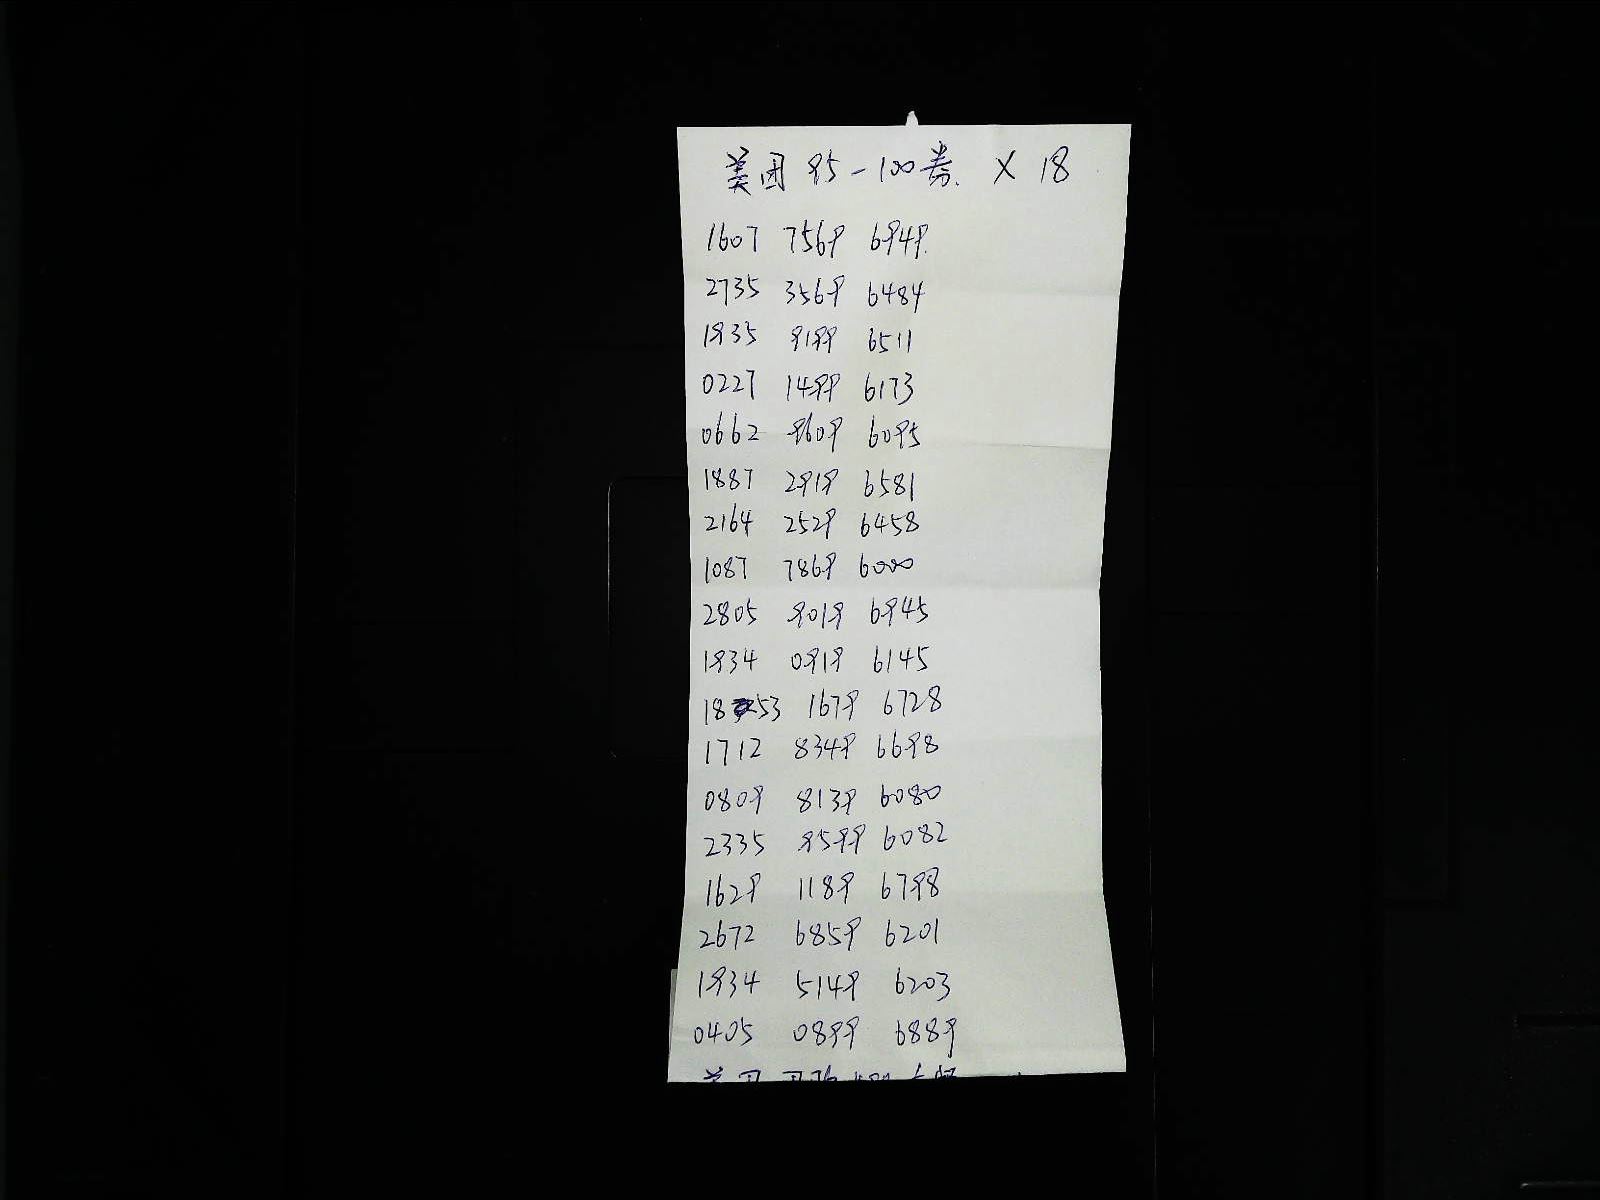 美团 95-100券. X 18
1607 7569 6949.
2735 3569 6484
1935 9199 6511
0227 1499 6173
0662 9609 6095
1887 2919 6581
2164 2529 6458
1087 7869 6000
2805 9019 6945
1934 0919 6145
1853 1679 6728
1712 8349 6698
0809 8139 6080
2335 9599 6082
1629 1189 6798
2672 6859 6201
1934 5149 6203
0405 0899 6889